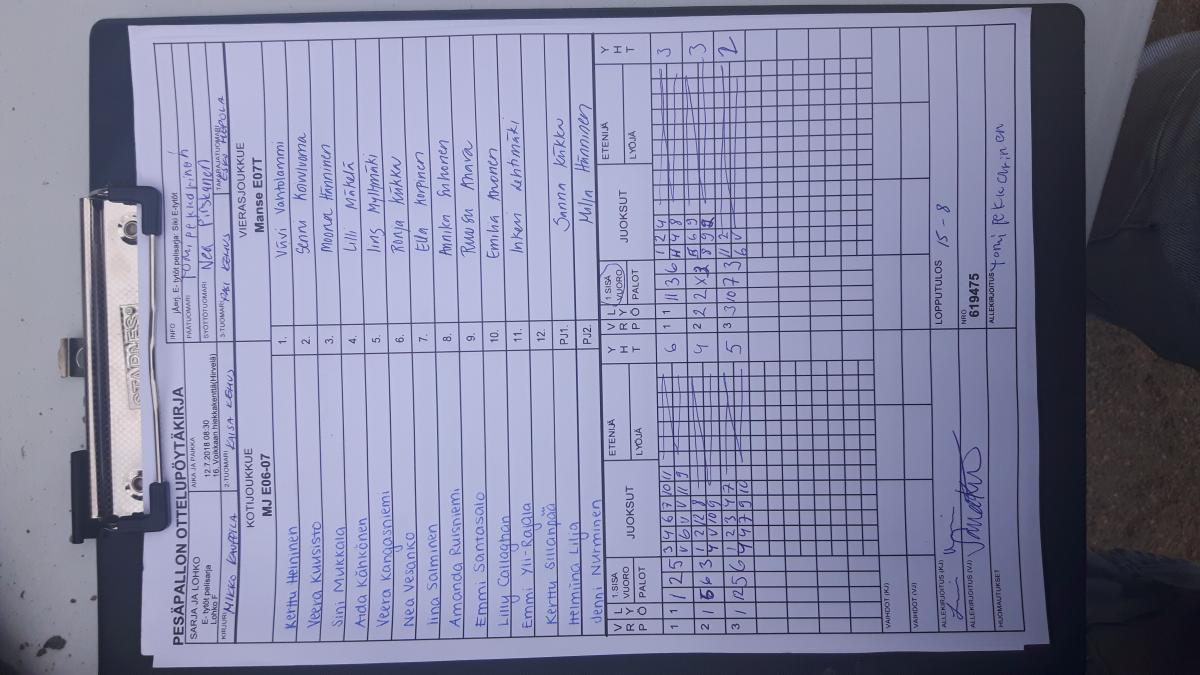 STARTNESS
PESÄPALLON OTTELUPÖYTÄKIRJA
SARJA JA LOHKO
E- tytöt pelisarja
Lohko F
AIKA JA PAIKKA
12.7.2018 08:30
16. Voikkaan hiekkakenttä(Hirvelä)
INFO
jÄerj. E- tytöt pelisarja: Siki E-tytöt
PÄÄTUOMARI Tomi Pekkarinen
SYÖTTÖTUOMARI Nea Piiskanen
KIRJURI MIKKO KAUPPILA
2-TUOMARI KAISA KEMUS
3-TUOMARI PASI KEMUS
TAKARAJATUOMARI ESKO HEPOLA
KOTIJOUKKUE
MJ E06-07
VIERASJOUKKUE
Manse E07T
Kerttu Heininen 1. Viivi Vahtolammi
Veera Kuusisto 2. Senni Koivuluoma
Sini Mukkala 3. Moona Hänninen
Aida Kähkönen 4. Lilli Mäkelä
Veera Kangasniemi 5. Iiris Myllymäki
Nea Vesanko 6. Ronja Kukku
Iina Salminen 7. Ella Korpinen
Amanda Ruisniemi 8. Annika Suhonen
Emmi Santasalo 9.
Lilly Callaghan 10. Emilia Ahonen
Emmi Yli-Rajala 11. Inkeri Lehtimäki
Kerttu Sillanpää 12.
Hermiina Lilja PJ1. Sanna Kukku
Jenni Nurminen PJ2. Hänninen
V R L Y Ö P 1.SISÄ VUORO PALOT JUOKSUT ETENIJÄ LYÖJÄ Y H T
V R L Y Ö P 1.SISÄ VUORO PALOT JUOKSUT ETENIJÄ LYÖJÄ Y H T
1 1 1 2 5 3 4 6 7 10 11 6
1 1 11 3 6 1 2 4 3
2 1 5 6 3 1 2 12 8 4
2 2 2 X 3
3 1 12 5 6 1 2 3 4 7 5
3 3 10 7 3 11 2 2
VAIHDOT (KJ)
VAIHDOT (VJ)
ALLEKIRJOITUS (KJ)
LOPPUTULOS 15 - 8
ALLEKIRJOITUS (VJ)
NRO
619475
HUOMAUTUKSET
ALLEKIRJOITUS Tomi Pekkarinen